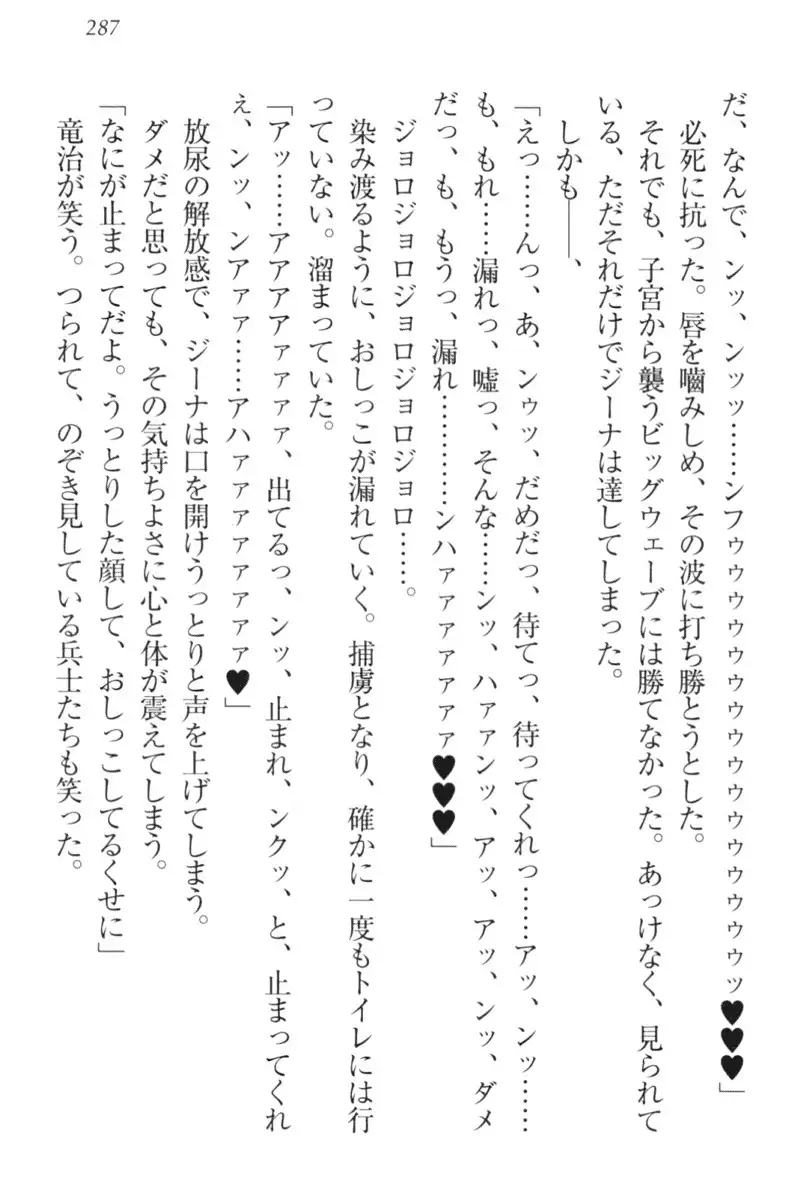 287
だ、なんで、ンッ、ンッッ……ンフゥゥゥゥゥゥゥゥゥゥゥゥゥゥゥッ♥♥♥」
　必死に抗った。唇を嚙みしめ、その波に打ち勝とうとした。
　それでも、子宮から襲うビッグウェーブには勝てなかった。あっけなく、見られて
いる、ただそれだけでジーナは達してしまった。
　しかも――、
「えっ……んっ、あ、ンゥッ、だめだっ、待てっ、待ってくれっ……アッ、ンッ……
も、もれ……漏れっ、嘘っ、そんな……ンッ、ハァァンッ、アッ、アッ、ンッ、ダメ
だっ、も、もうっ、漏れ…………ンハァァァァァァァ♥♥♥」
　ジョロジョロジョロジョロ……。
　染み渡るように、おしっこが漏れていく。捕虜となり、確かに一度もトイレには行
っていない。溜まっていた。
「アッ……アアアアァァァァ、出てるっ、ンッ、止まれ、ンクッ、と、止まってくれ
ぇ、ンッ、ンアァァ……アハァァァァァァァァ♥」
　放尿の解放感で、ジーナは口を開けうっとりと声を上げてしまう。
　ダメだと思っても、その気持ちよさに心と体が震えてしまう。
「なにが止まってだよ。うっとりした顔して、おしっこしてるくせに」
　竜治が笑う。つられて、のぞき見している兵士たちも笑った。